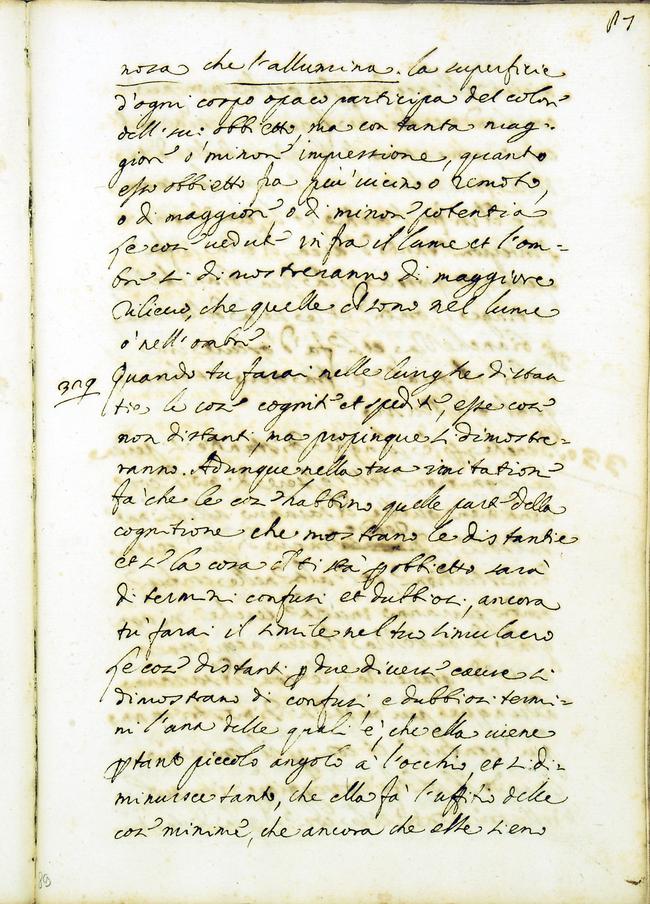 87
nosa che l'allumina. la superficie
d'ogni corpo opaco participa del color
dell' suo obbietto, ma con tanta mag-
gior o' minor impressione, quanto
esso obbietto fia più uicino o remoto,
o di maggior o di minor potentia
Le cose uedute infra il lume et l'om=
bre si dimostreranno di maggiore
rilieuo, che quelle ch sono nel lume
o' nell' ombre.
309
Quando tu farai nelle lunghe distan
tie le cose cognite et spedite, esse cose
non distanti, ma propinque si dimostre=
ranno. Adunque nella tua imitatione
fa' che le cose habbino quelle parte della
cognitione che mostrano le distantie
et se la cosa ch ti sta p obbietto sara'
di termini confusi et dubbiosi, ancora
tu' farai il simile nel tuo simulacro
Le cose distanti p due diuerse cause si
dimostrano di confusi, e dubbiosi termi=
ni l'una delle quali è, che ella uiene
p tanto piccolo angolo a' l'occhio, et si di=
minuisce tanto, che ella fa' l'uffitio delle
cose minime, che ancora che esse sieno
89